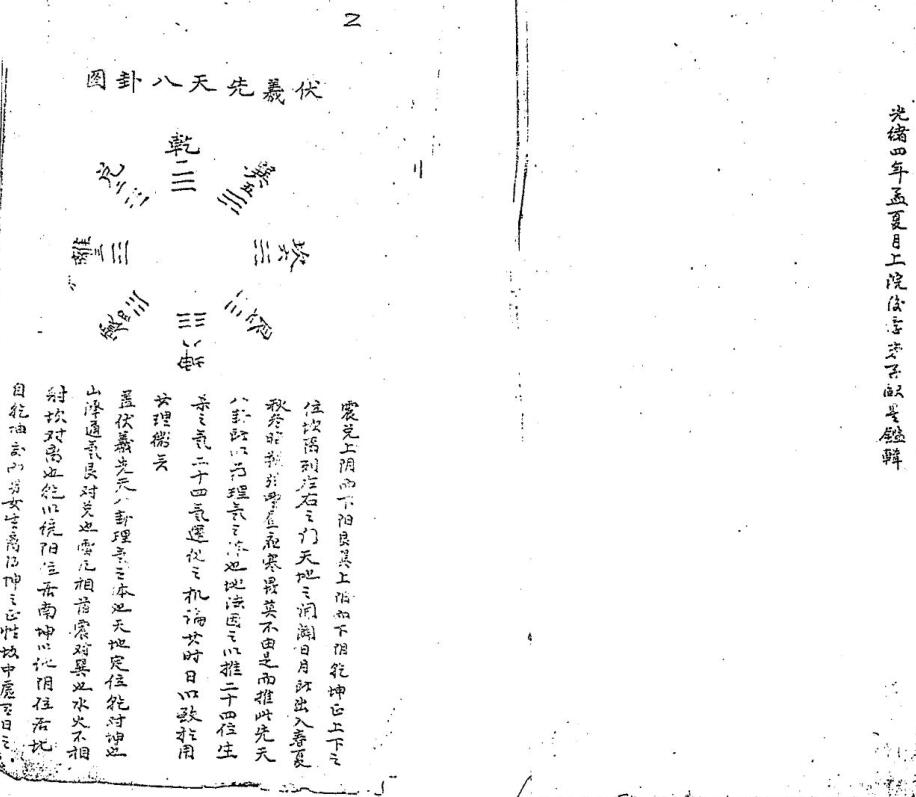 光绪四年孟夏月上院
鑑輯
2
伏羲先天八卦图
乾一
兑二
離三
震四
巽五
坎六
艮七
坤八
震兑上阴而下阳艮巽上阳而下阴乾坤正上下之
位坎离列左右之门天地之阖闢日月所出入春夏
秋冬昼夜寒暑莫不由是而推此先天
八卦所以为理氣之体也地法因之以推二十四位生
杀之氣二十四氣運化之机論其时日以致於用
其理微矣
蓋伏羲先天八卦理氣之本也天地定位乾对坤也
山泽通氣艮对兑也雷风相薄震对巽也水火不相
射坎对离也乾以统阳位居南坤以池阴位居北
自乾坤交而男女生离得坤之正性故中處